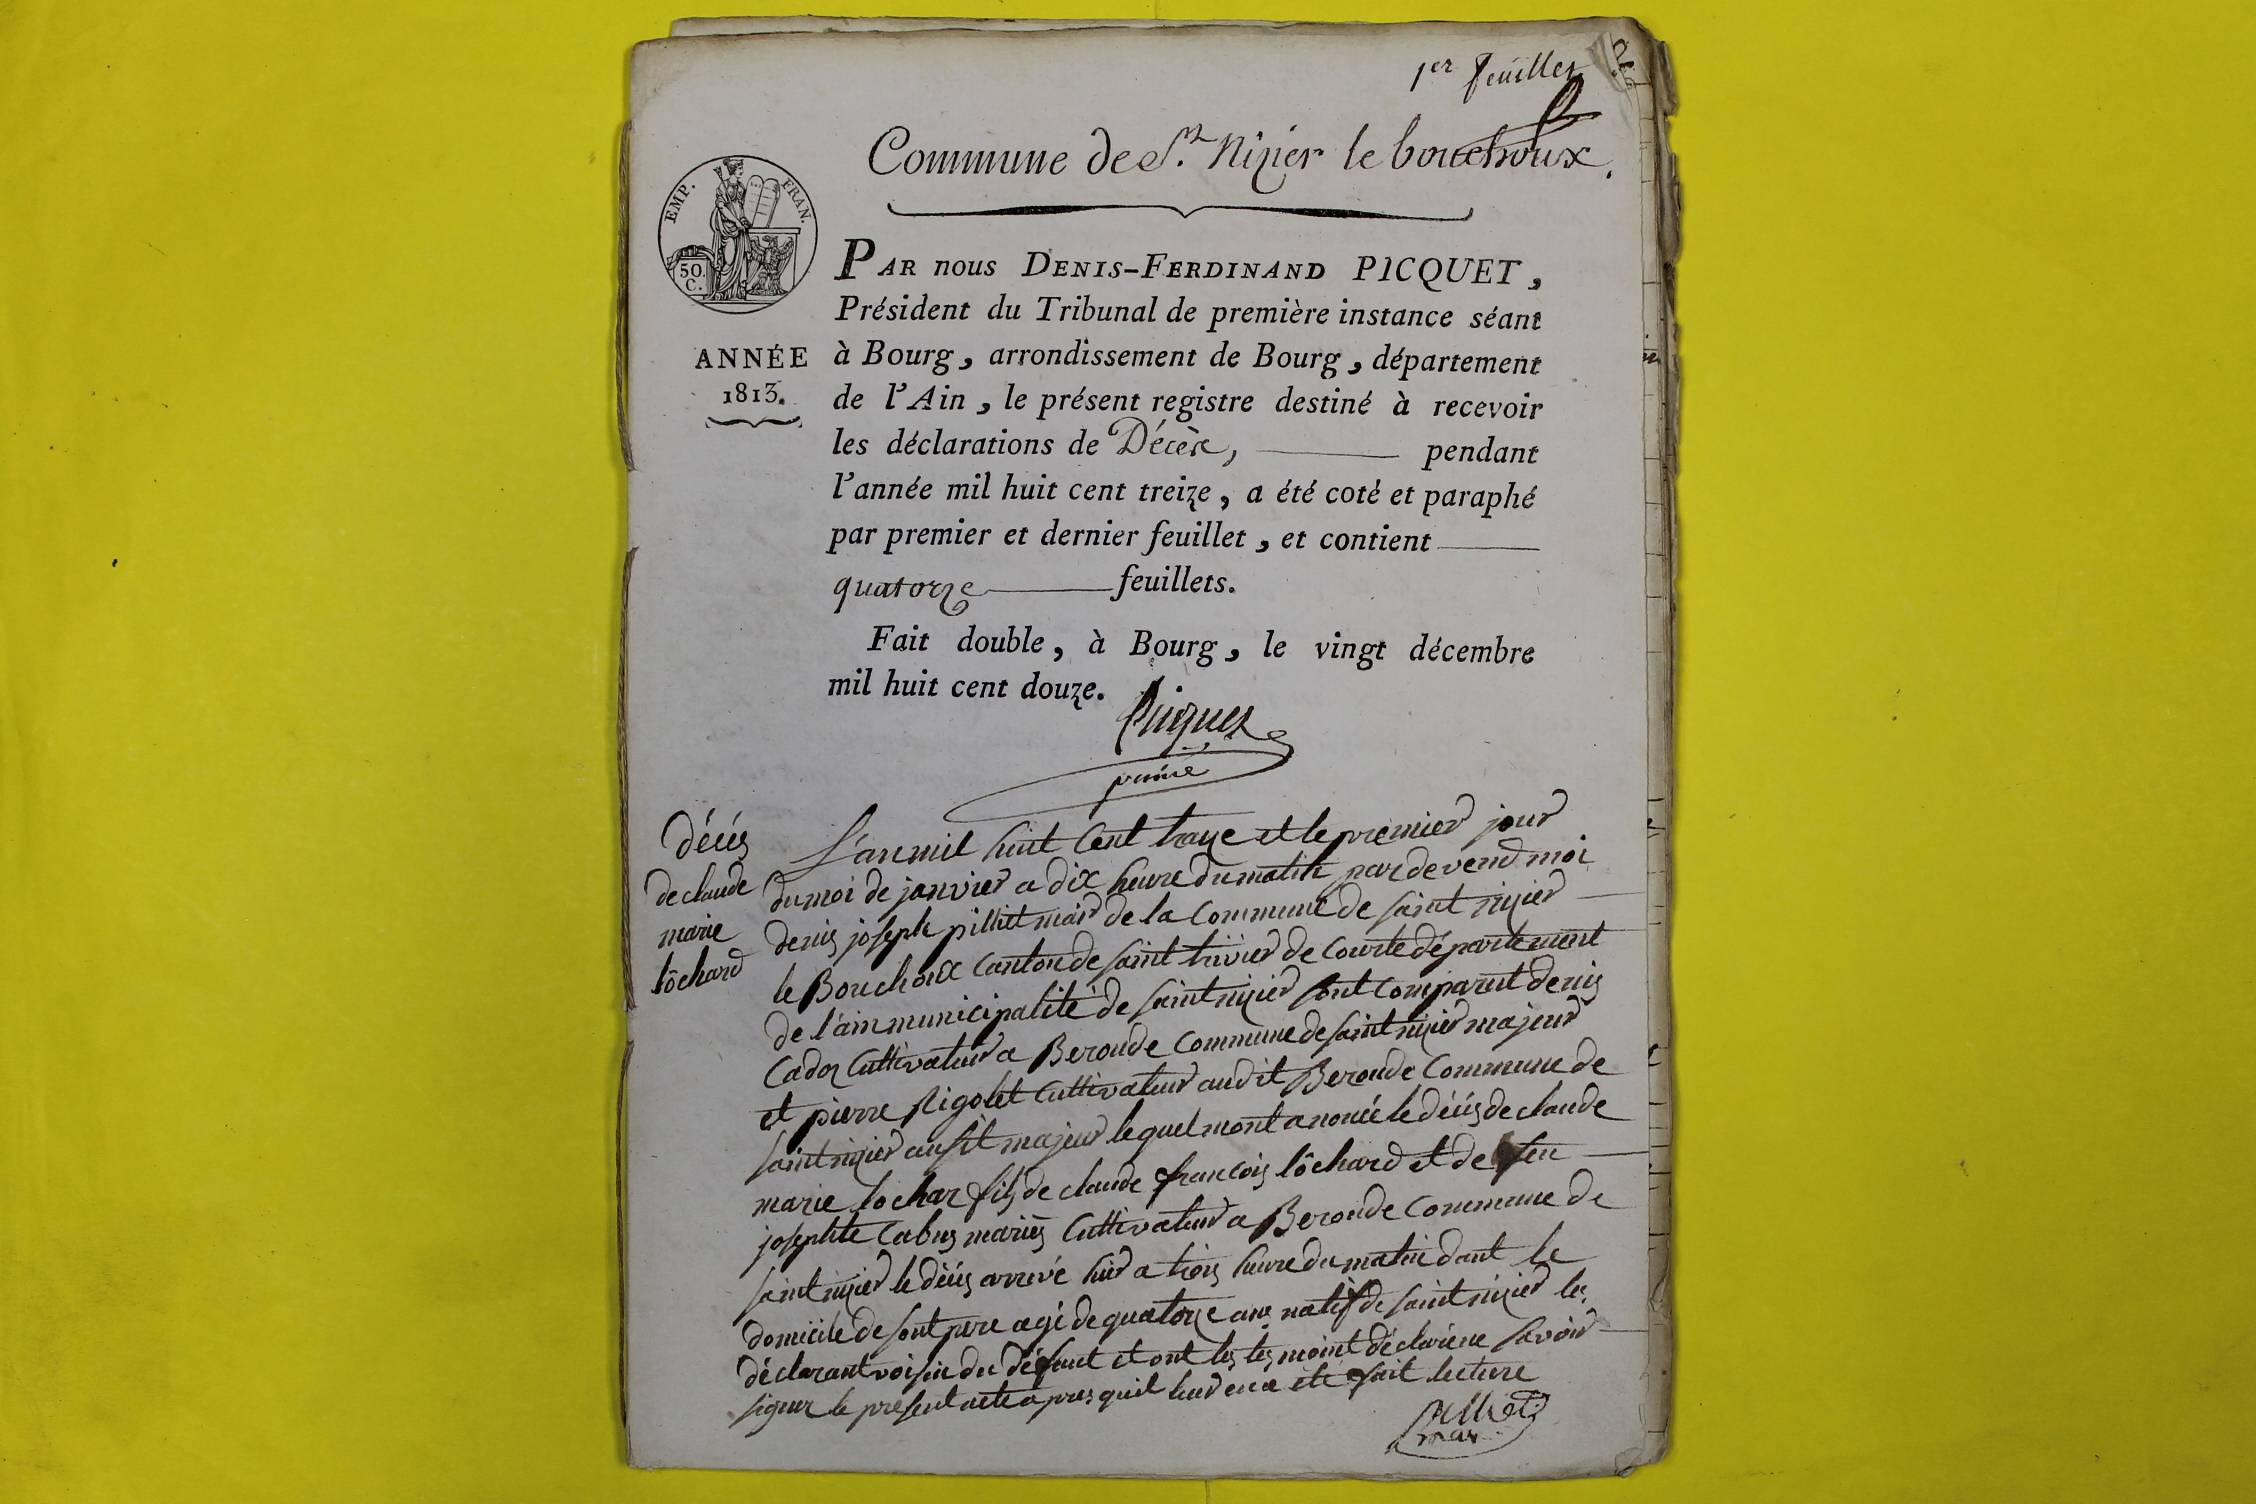 1er feuillet
Commune de St. Nizier le bouchoux.
EMP. FRAN.
50. C.
ANNÉE
1813.
PAR nous DENIS-FERDINAND PICQUET,
Président du Tribunal de première instance séant
à Bourg, arrondissement de Bourg, département
de l'Ain, le présent registre destiné à recevoir
les déclarations de Décès, pendant
l'année mil huit cent treize, a été coté et paraphé
par premier et dernier feuillet, et contient
quatorze feuillets.
Fait double, à Bourg, le vingt décembre
mil huit cent douze.
Picquet
Décés
de claude
marie
lôchard
L'an mil huit Cent traize et le premier jour
du moi de janvier a dix heure du matin par devend moi
denis joseph pilliet mair de la Commune de saint nizier
le Bouchoux Canton de saint trivier de Courte département
de l'ain municipalité de saint nizier sont Comparut denis
Cadoz Cultivateur a Beroude Commune de saint nizier majeur
et pierre Rigolet Cultivateur audit Beroude Commune de
saint nizier ausit majeur lequel mont anoncé le décés de claude
marie lochar fils de claude françois lôchard et de feu
josephte Cabus mariés Cultivateur a Beroude Commune de
saint nizier le décés arrivé hier a trois heure du matin dant le
domicile de sont pere agé de quatorze ans natif de saint nizier les
déclarant voisin du défunt et ont les tesmoint déclaré ne savoir
signer le present acte apres quil leur en a été fait lecture
Pilliet
mair